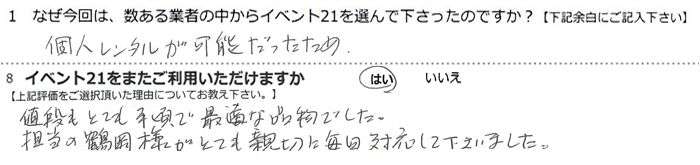 1 なぜ今回は、数ある業者の中からイベント21を選んで下さったのですか？【下記余白にご記入下さい】
個人レンタルが可能だったため.
8 イベント21をまたご利用いただけますか はい いいえ
【上記評価をご選択頂いた理由についてお教え下さい。】
値段もとても手頃で最適な品物でした。
担当の鶴岡様がとても親切に毎回対応して下さいました。